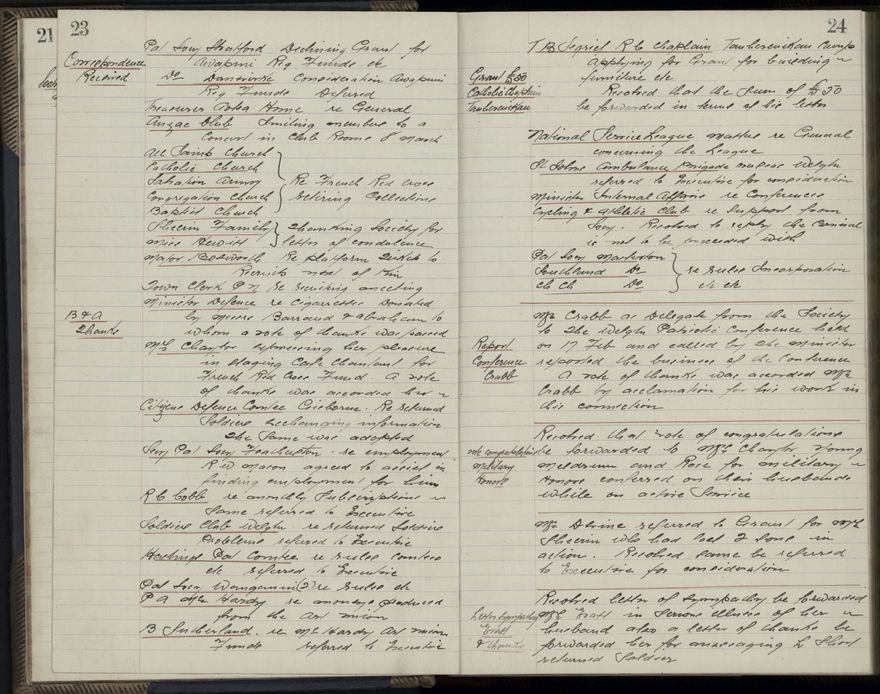 21
23
Correspondence
Received
Pat Socy Stratford Declining Grant for
Awapuni Rq Funds etc
Do Dannevirke Consideration Awapuni
Rq Funds Deferred
Treasurer Potea Home re General
Anzac Club Inviting members to a
Concert in Club Rooms 8 March
All Saints Church
Catholic Church
Salvation Army
Congregation Church
Baptist Church
Re French Red Cross
retiring Collections
Sheerin Family
Miss Hewitt
thanking Society for
letter of condolence
Major Bosworth Re platform tickets to
Wierick next of Kin
Town Clerk P N re recruiting meeting
Minister Defence re Cigarettes Donated
B & A
Thanks
by Messrs Barraud & Abraham to
whom a vote of thanks was passed
Mrs Chaytor expressing her pleasure
in staging Cafe Chantant for
French Red Cross Fund A vote
of thanks was accorded her
Citizens Defence Comtee Gisborne. Re returned
Soldiers Exchanging information
The Same was adopted
Socy Pat Socy Featherston re employment
Rd Macon agreed to assist in
finding employment for him
R L Cobb re monthly Subscriptions
Same referred to Executive
Soldiers Club Welgtn re returned Soldiers
Problems referred to Executive
Hastings Pat Comtee re rules comtees
etc referred to Executive
Pat Socy Wanganui (2) re rules etc
P A Hardy re moneys produced
from the Art Union
B Sutherland re Mrs Hardy Art Union
Funds referred to Executive
24
T B Segrief R C Chaplain Tauherenikau Camp
applying for Grant for building
furniture etc
Grant £50
Catholic Chaplain
Tauherenikau
Resolved that the Sum of £50
be forwarded in terms of his letter
National Service League Masters re General
concerning the League
St Johns Ambulance Brigade Nurses Welgtn
referred to Executive for consideration
Minister Internal Affairs re Conference
Cycling & Athletic Club re Support from
Socy. Resolved to reply the Carnival
is not to be proceeded with
Pat Socy Masterton
Southland Do
Ch Ch Do
re rules Incorporation
etc etc
Mr Crabb as Delegate from the Society
to the Welgtn Patriotic Conference held
on 17 Feb and called by the Minister
Report
Conference
Crabb
reported the business of the Conference
A vote of thanks was accorded Mr
Crabb by acclamation for his work in
this connection
Resolved that vote of congratulations
Vote congratulations
Military
Honors
be forwarded to Mrs Chaytor Young
Meldrum and Rose for military
Honors conferred on their husbands
while on active Service
Mr Devine referred to Grant for Mrs
Sheerin who had lost 2 sons in
action. Resolved same be referred
to Executive for consideration
Resolved letter of Sympathy be forwarded
Letter Sympathy
& thanks
Mrs in serious illness of her
husband also a letter of thanks be
forwarded her for
returned Soldier